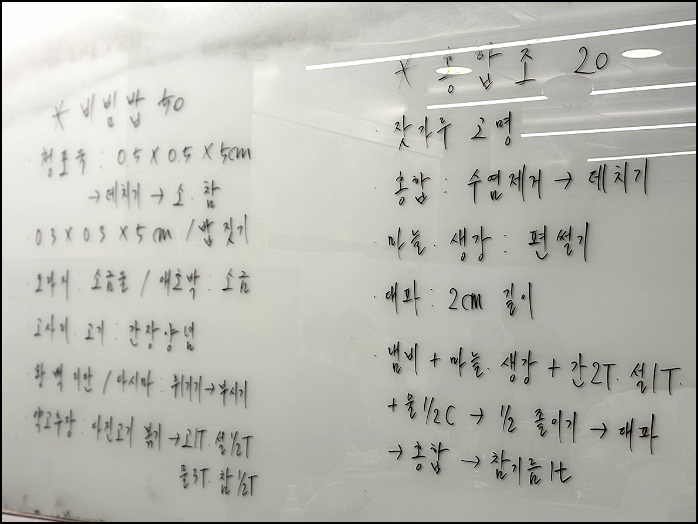 * 비빔밥 50
청포묵 : 0.5 X 0.5 X 5cm
→ 데치기 → 소. 참
0.3 X 0.3 X 5cm / 밥 짓기
도라지 : 소금물 / 애호박 : 소금
고사리. 고기 : 간장양념
황. 백 지단 / 다시마 : 튀기기 → 부시기
약고추장 : 다진고기 볶기 → 고1T. 설1/2T
물3T. 참1/2T
* 홍합초 20
· 잣가루 고명
· 홍합 : 수염제거 → 데치기
· 마늘. 생강 : 편썰기
· 대파 : 2cm 길이
· 냄비 + 마늘. 생강 + 간2T. 설1T.
+ 물1/2C → 1/2 졸이기 → 대파
→ 홍합 → 참기름1t